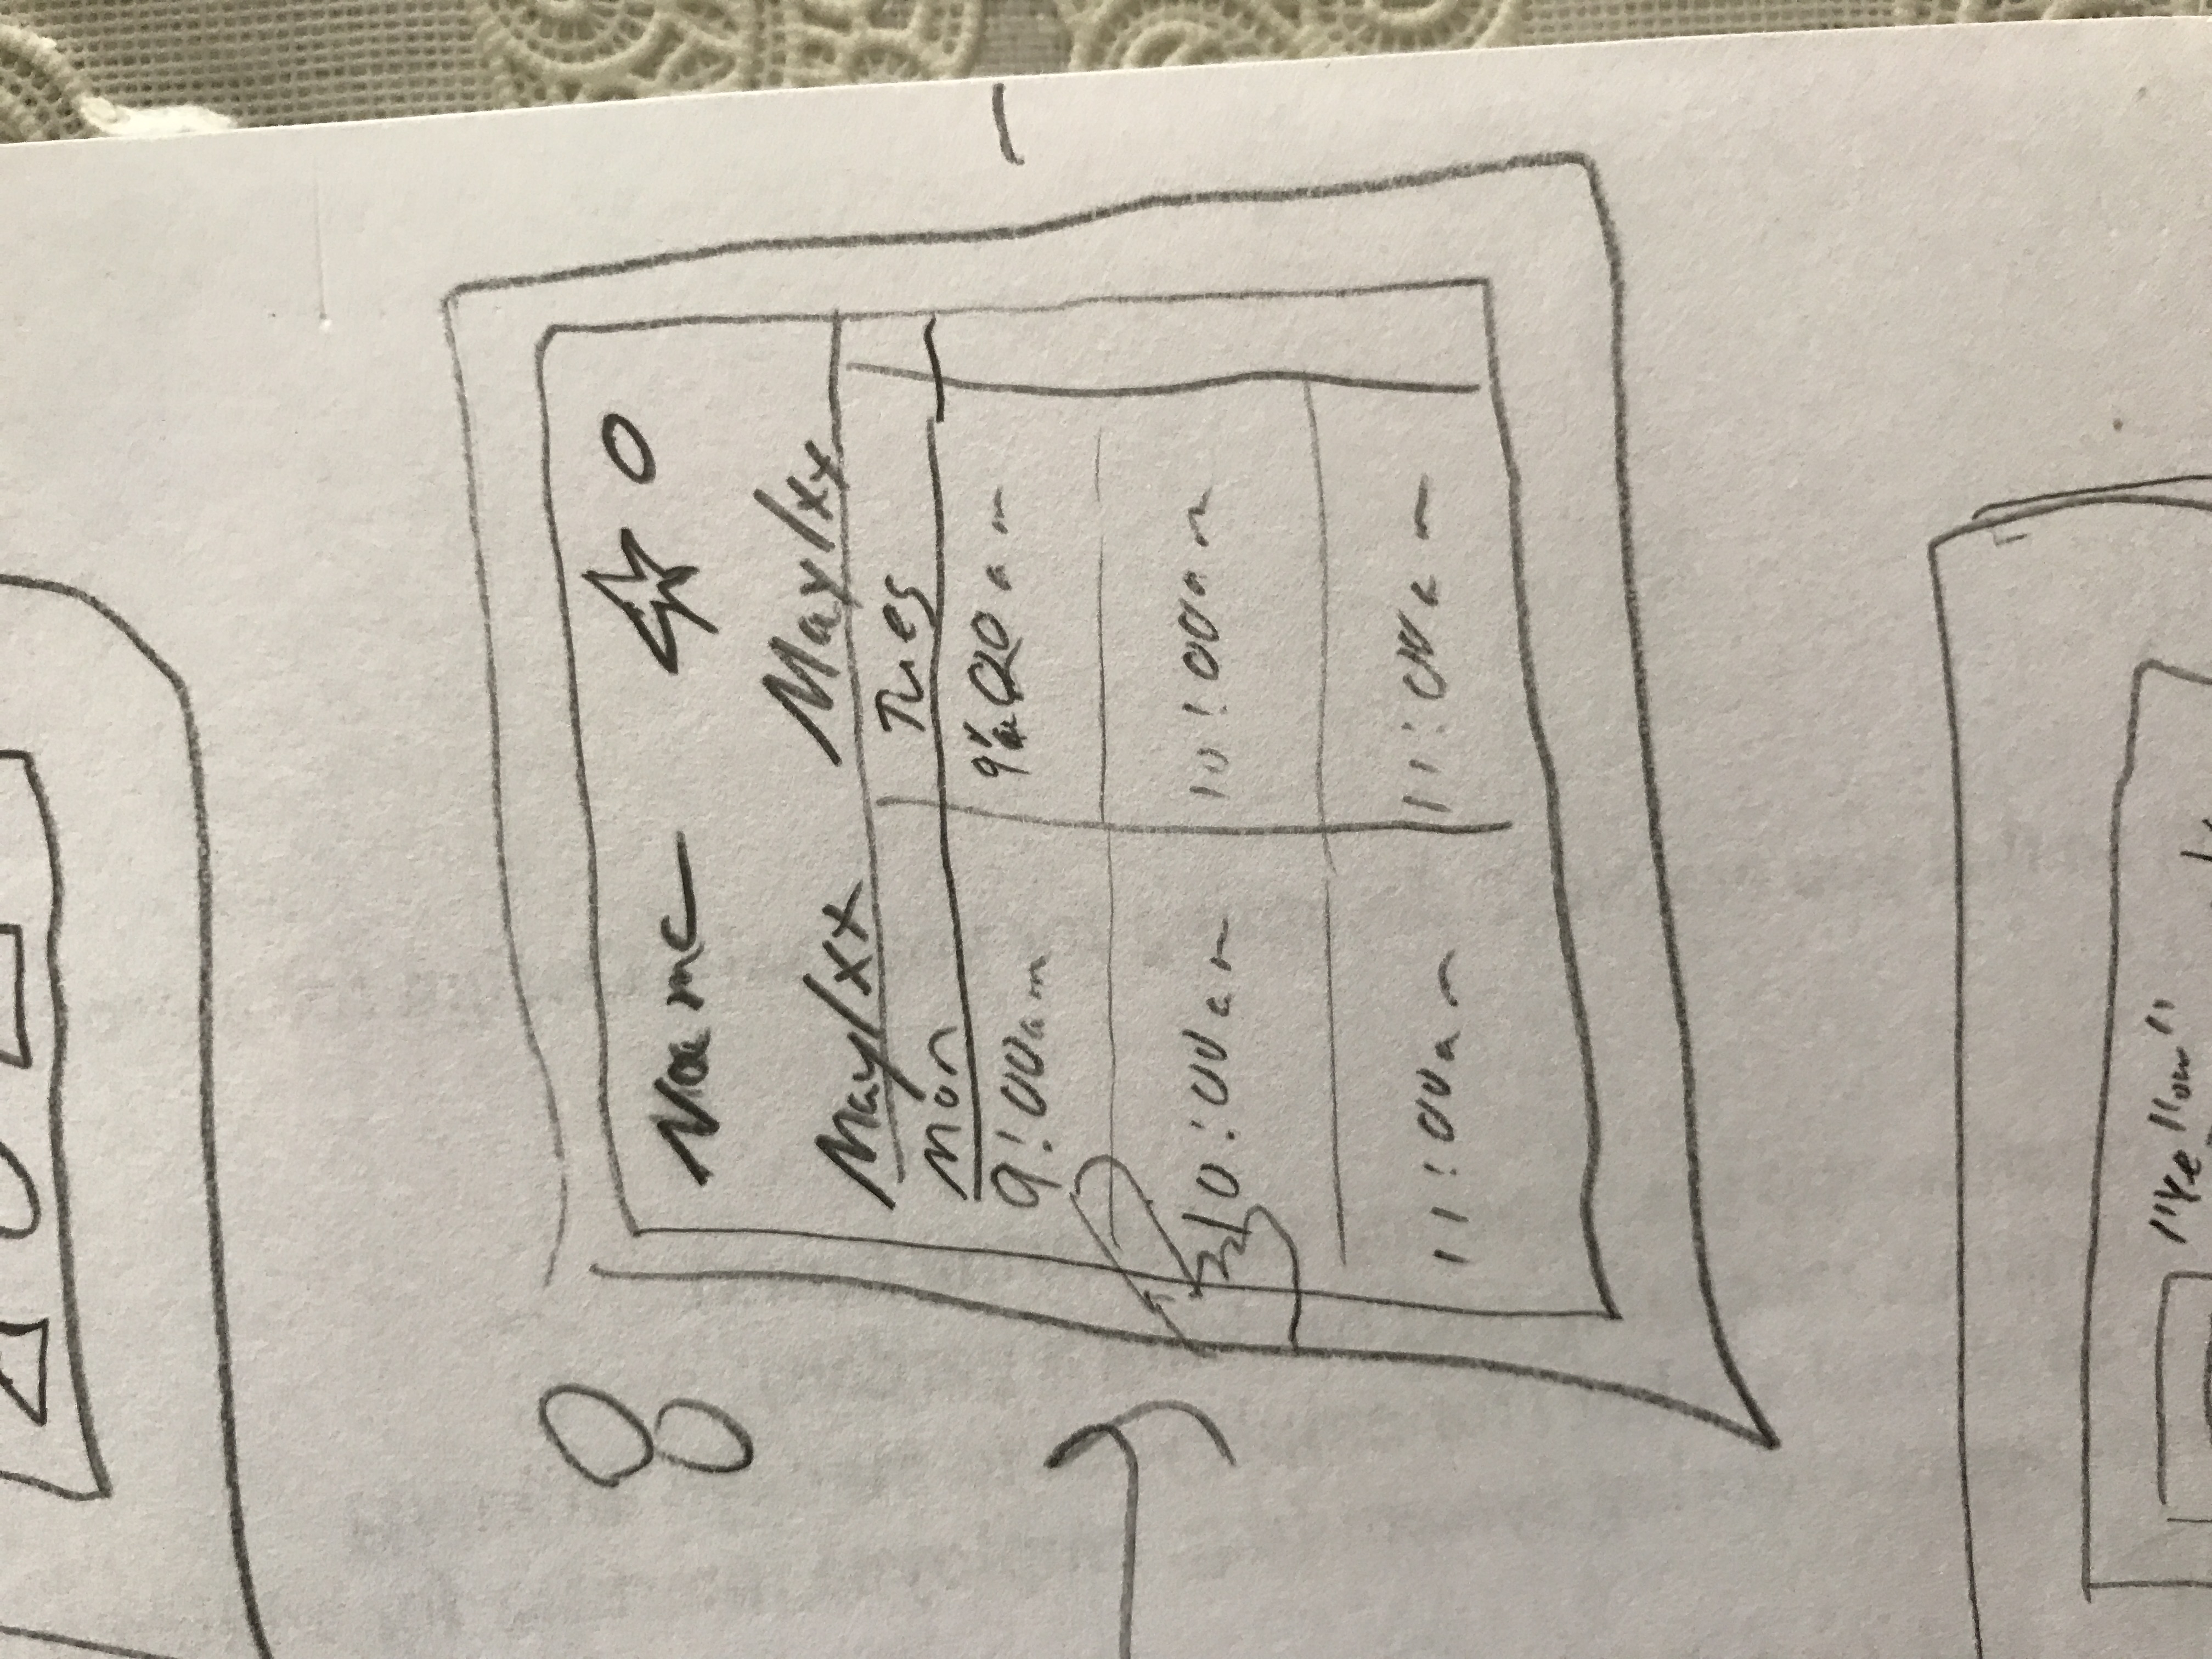 8
Name
May/xx May/xx
Mon Tues
9:00am 9:00am
10:00am 10:00am
11:00am 11:00am
"Yellow"